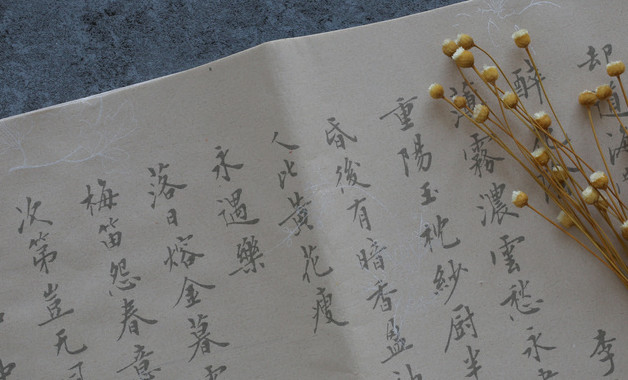 却道海
醉花 李
薄霧濃雲愁永
重陽玉枕紗厨半
昏後有暗香盈袖
人比黃花瘦
永遇樂
落日熔金暮雲
梅笛怨春意
次第豈无